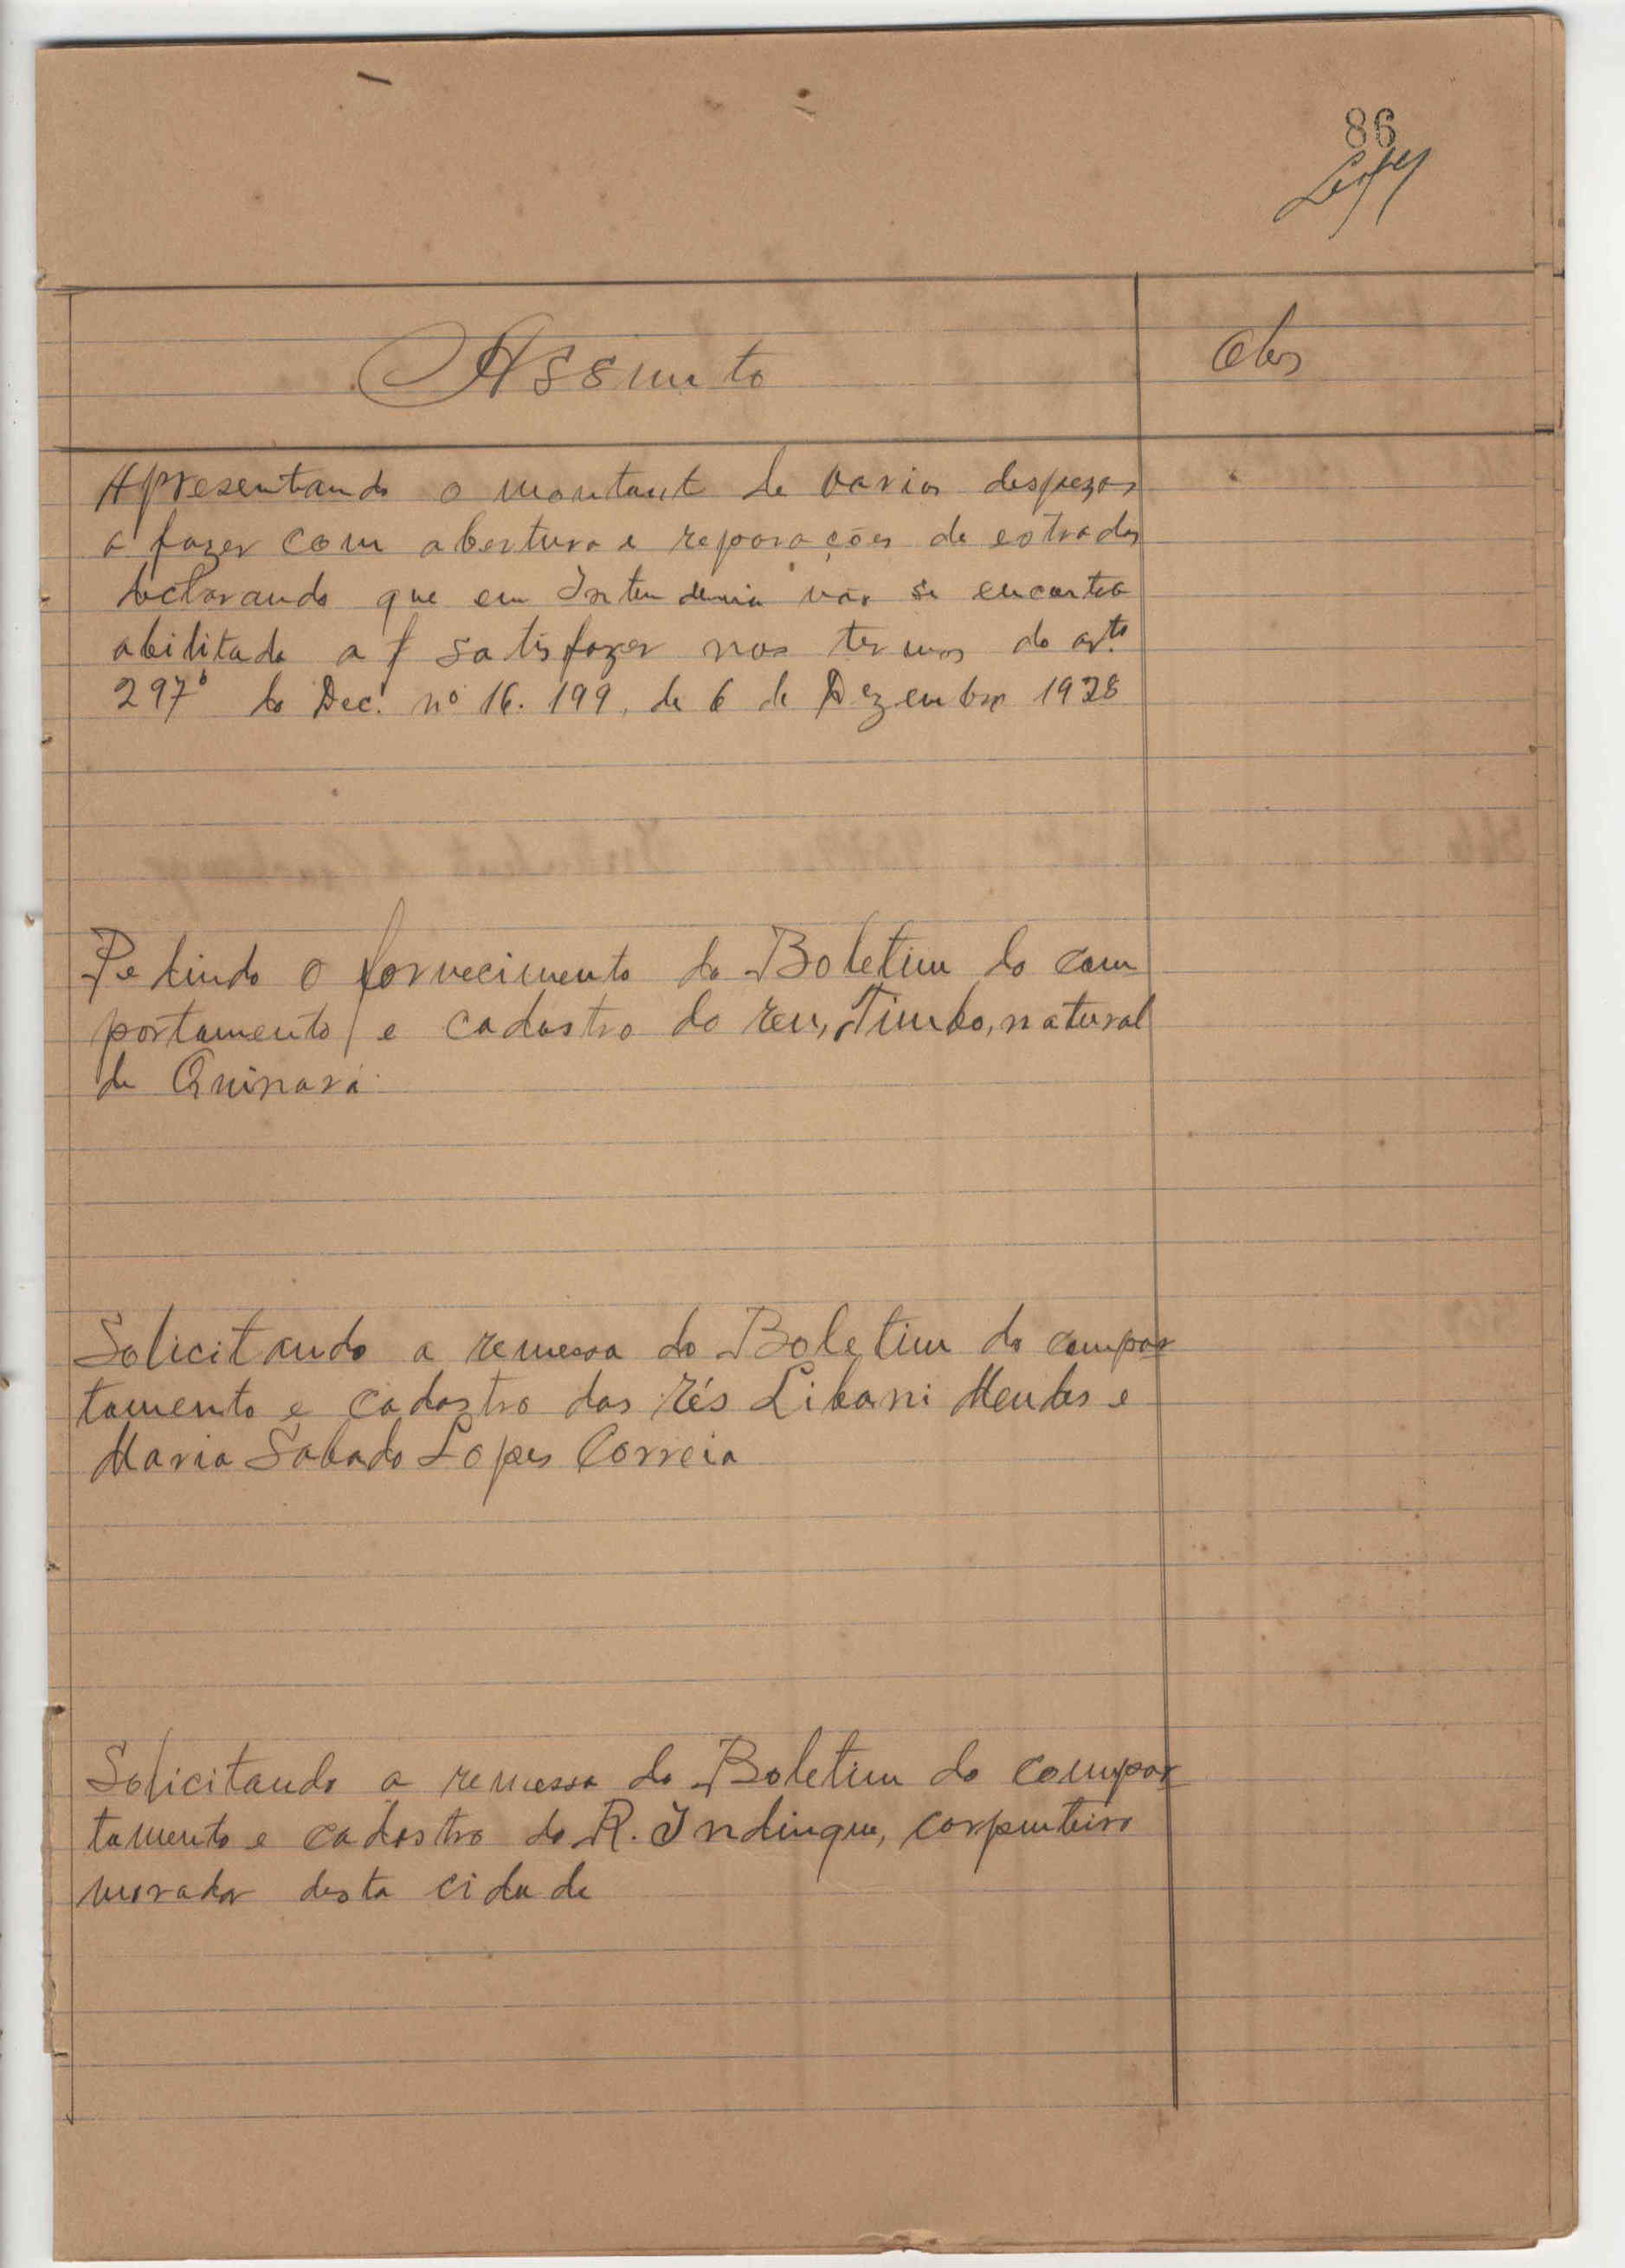 86
Assunto
Obs
Apresentando o montant de varias despezas
a fazer com abertura e reparações de estradas
declarando que em Intendencia não se encontra
abilitada a satisfazer nos termos do artº
297º do Dec. nº 16.199, de 6 de Dezembro 1928
Pedindo o fornecimento do Boletim do com
portamento e cadastro do reu, Timbo, natural
de Quinará
Solicitando a remessa do Boletim do compor
tamento e cadastro das rés Libani Mendes e
Maria Sabado Lopes Correia
Solicitando a remessa do Boletim do compor
tamento e cadastro do R. Indingue, carpinteiro
morador desta cidade